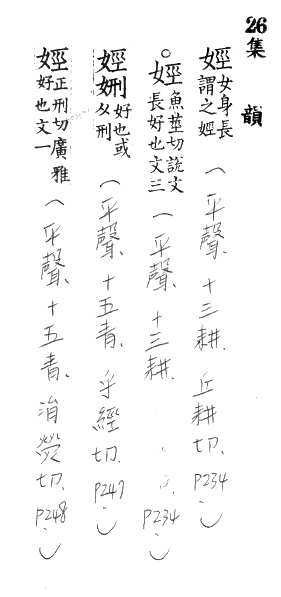 26集 韻
娙女身長謂之娙(平聲、十三耕、丘耕切、P234、)
○娙魚莖切說文長好也文三(平聲、十三耕、P234、)
娙㛦好也或从刑(平聲、十五青、乎經切、P247、)
娙正刑切廣雅好也文一(平聲、十五青、消熒切、P248、)